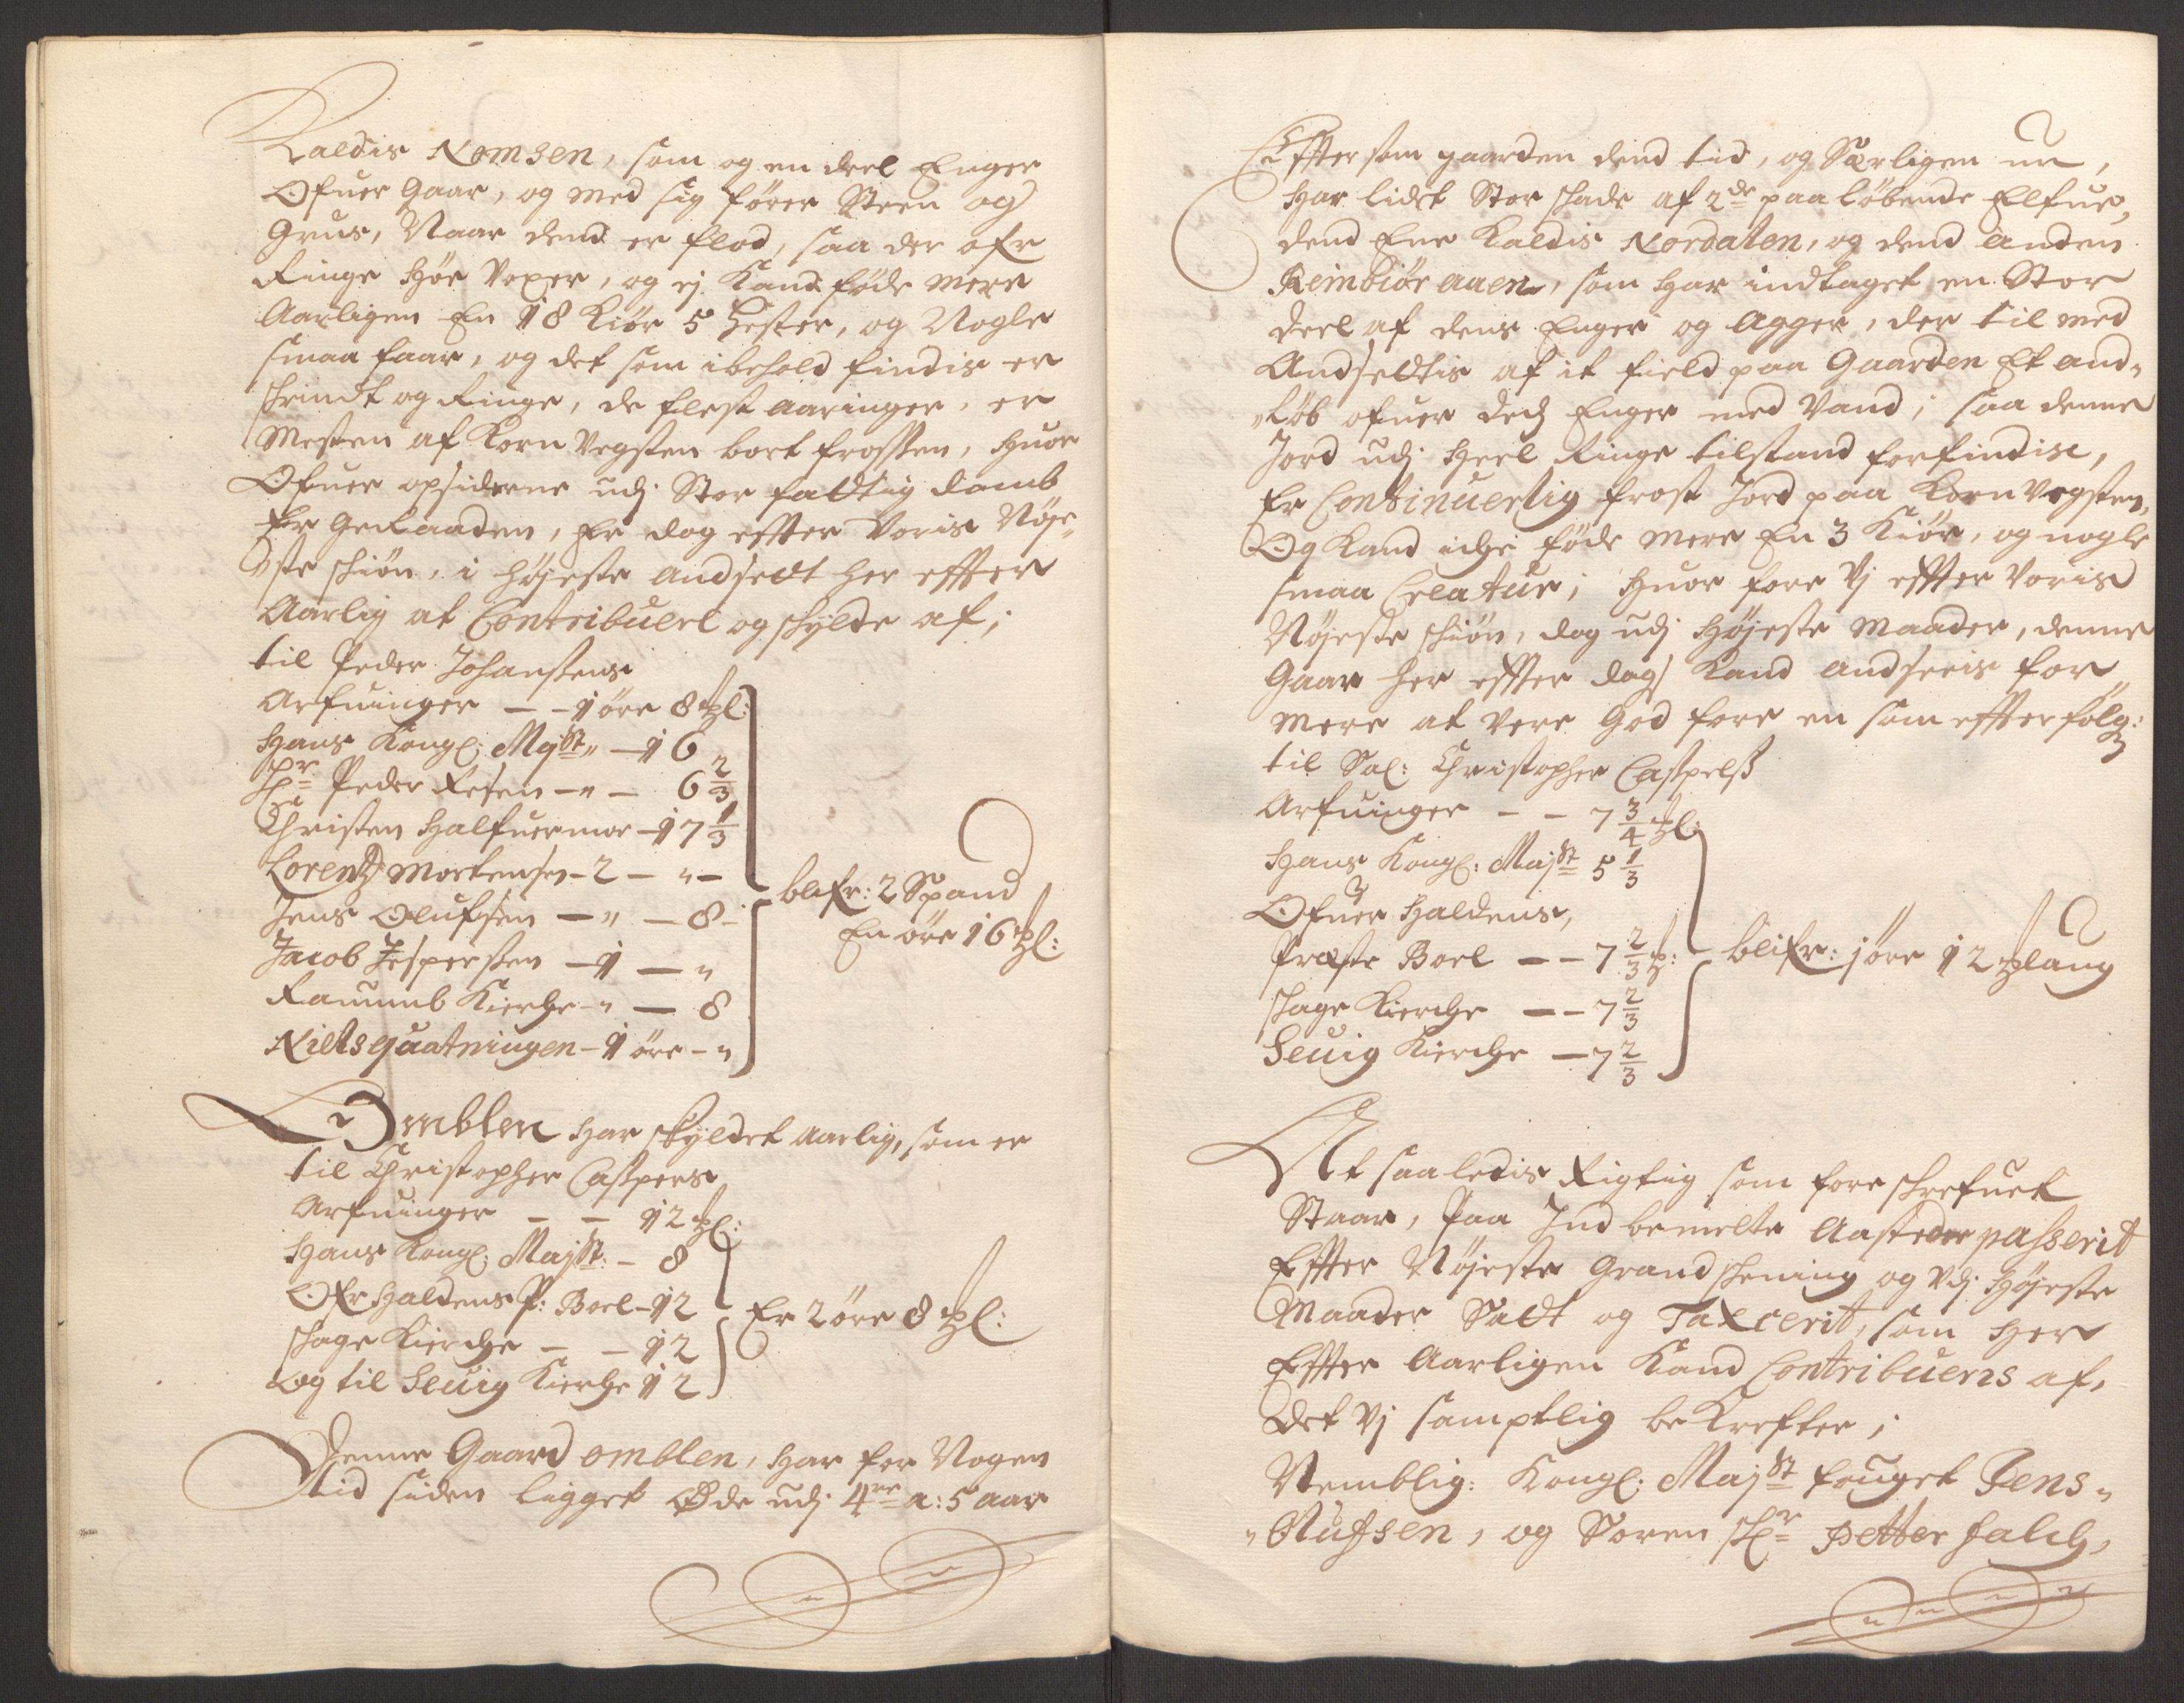 Kaldis Nomsen, som og en deel Enger
Ofuer gaar, og med sig fører Steen og
Grus, Naar dend er flod, saa der ofr
Ringe Høe voxer, og ej Kand føde mere
Aarligen En 18 Kiør 5 Hester, og Nogle
smaa faar, og det som i behold findis er
schrindt og Ringe, de flest aaringer, er
Mesten af Korn Vexten bort frossen, Huor
Ofuer opsiderne udj Stor fattig domb
Er Geraaden, Er dog effter Voris Nøje-
"ste schiøn, i højeste andsedt her effter
Aarlig at Contribuere og schylde af;
til Peder Johansens
Arfuinger — - 1 øre 8 pl:
Hans Kongl: Mayst " — 16
Hr Peder Resen - " — 6 2/3
Christen Halfuermoe — 17 1/3
Lorentz Mortensen - 2 — " —
Jens Olufsen — " — 8 -
Jacob Jespersen — 1 — "
Ranumb Kierche " — 8
Niels quatningen - 1 øre - "
blifr: 2 Spand
En øre 16 pl:
Omblen Har schyldet aarlig, som er
til Christopher Caspers
Arfuinger — — 12 pl:
Hans Kongl: Mayst: — 8
Ofr Haldens P: Boel - 12
schage Kierche — — 12
og til Seuig Kierche 12
Er 2 øre 8 pl:
Denne Gaard omblen, Har for Nogen
tid siden ligget Øde udj 4re a: 5 aar
Effter som gaarden dend tid, og Særligen nu,
Har lidet Stor schade af 2de paa løbende Elfue,
dend Ene Kaldis Nordalen, og dend anden
Reinbiør aaen, som har indtaget en Stor
deel af dens Enger og Agger, der til med
Andsettis af it field paa Gaarden Et and-
"løb ofuer deds Enger med Vand; saa denne
Jord udj Heel Ringe tilstand forfindis,
Er Continuerlig frost Jord paa Korn Vegsten,
Og Kand iche føde mere En 3 Kiør, og nogle
smaa Creatur; Huor fore Vj effter Voris
Nøjeste schiøn, dog udj Højeste Maader, denne
Gaar her effter dags Kand andseeis for
mere at vere God fore en som effterfølg:
til Sal: Christopher Caspers
Arfuinger — — 7 3/4 pl:
Hans Kongl: Mayst 5 1/3
Ofuer Haldens,
Præste Boel — — 7 2/3 p:
schage Kierche — — 7 2/3
Seuig Kierche — 7 2/3
blifr: 1 øre 12 plaug
At saaledis Rigtig som fore schrefuet
Staar, Paa Ind bemelte Aasteder passerit
Effter Nøjeste Grandschening og Vdj Højeste
Maader Sadt og Taxcerit, som Her
Effter Aarligen Kand Contribuers af,
Det Vj samptlig be Krefter;
Nemblig: Kongl: Mayst fouget Jens
"Olufsen, og Soren schr Petter Falch,